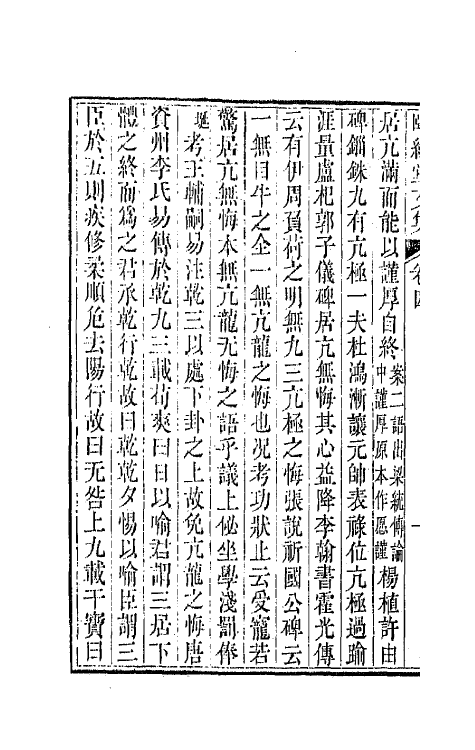 居亢滿而能以謹厚自終案二語出梁統傳論中謹厚原本作愿謹楊植許由
碑錙銖九有亢極一夫杜鴻漸讓元帥表祿位亢極過踰
涯量盧杞郭子儀碑居亢無悔其心益降李翰書霍光傳
云有伊周負荷之明無九三亢極之悔張說祈國公碑云
一無目牛之全一無亢龍之悔也況考功狀止云受寵若
驚居亢無悔本無亢龍无悔之語乎議上侂坐學淺罰俸
考王輔嗣易注乾三以處下卦之上故免亢龍之悔唐
資州李氏易傳於乾九三載荀爽曰日以喻君謂三居下
體之終而爲之君承乾行乾故曰乾乾夕惕以喻臣謂三
臣於五則疾修柔順危去陽行故曰无咎上九載干寶曰
卷四